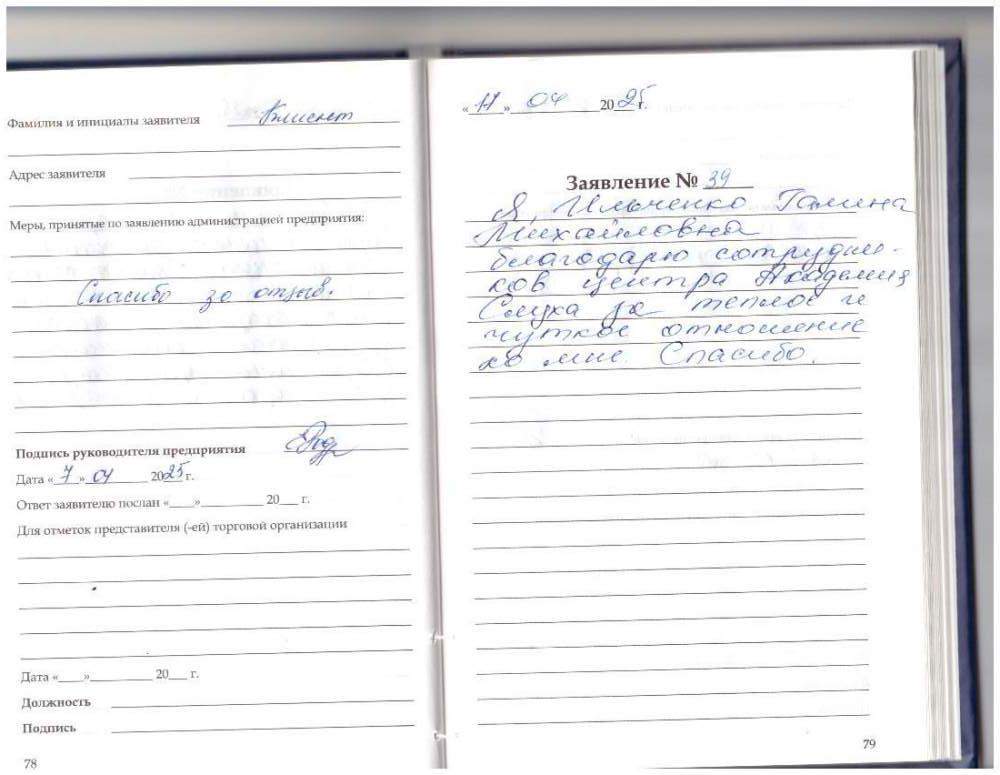 Фамилия и инициалы заявителя
Адрес заявителя
Меры, принятые по заявлению администрацией предприятия:
Спасибо за отзыв.
Подпись руководителя предприятия
Дата «7» 04 2025 г.
Ответ заявителю послан «___»__________ 20___ г.
Для отметок представителя (-ей) торговой организации
Дата «____»__________ 20___ г.
Должность
Подпись
78
«17» 04 2025 г.
Заявление № 39
Я, Ильченко Галина
Михайловна
благодарю сотрудни-
ков центра Академия
Слуха за теплое и
чуткое отношение
ко мне. Спасибо.
79